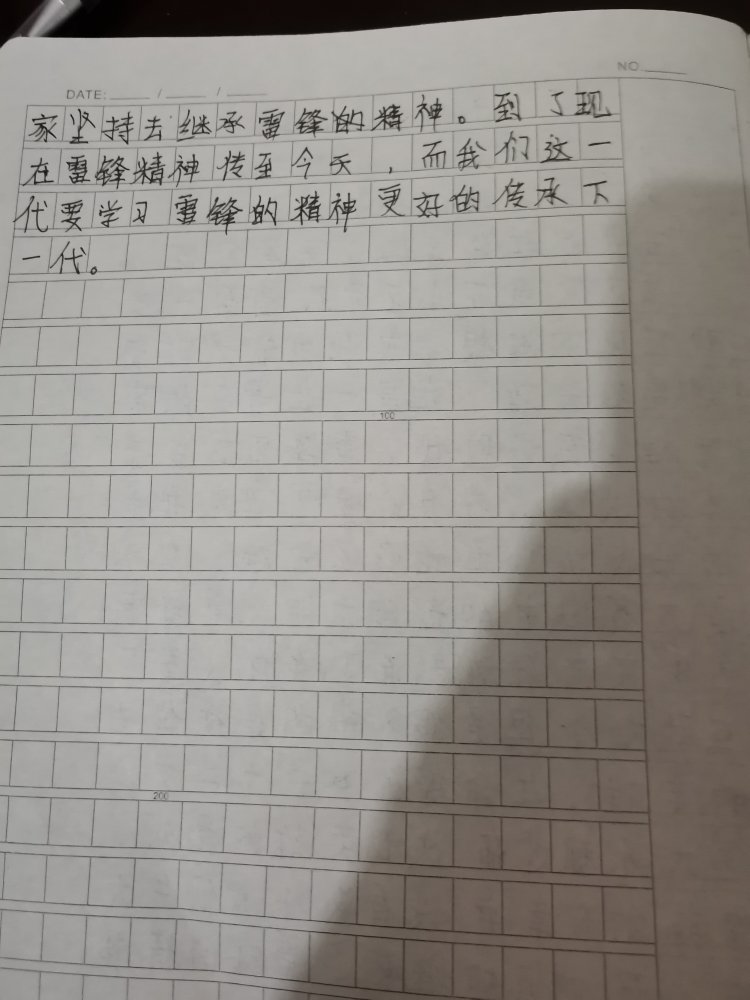 DATE: ____ / ____ / ____
NO. ____
家坚持去继承雷锋的精神。到了现
在雷锋精神传至今天，而我们这一
代要学习雷锋的精神更好的传承下
一代。
100
200